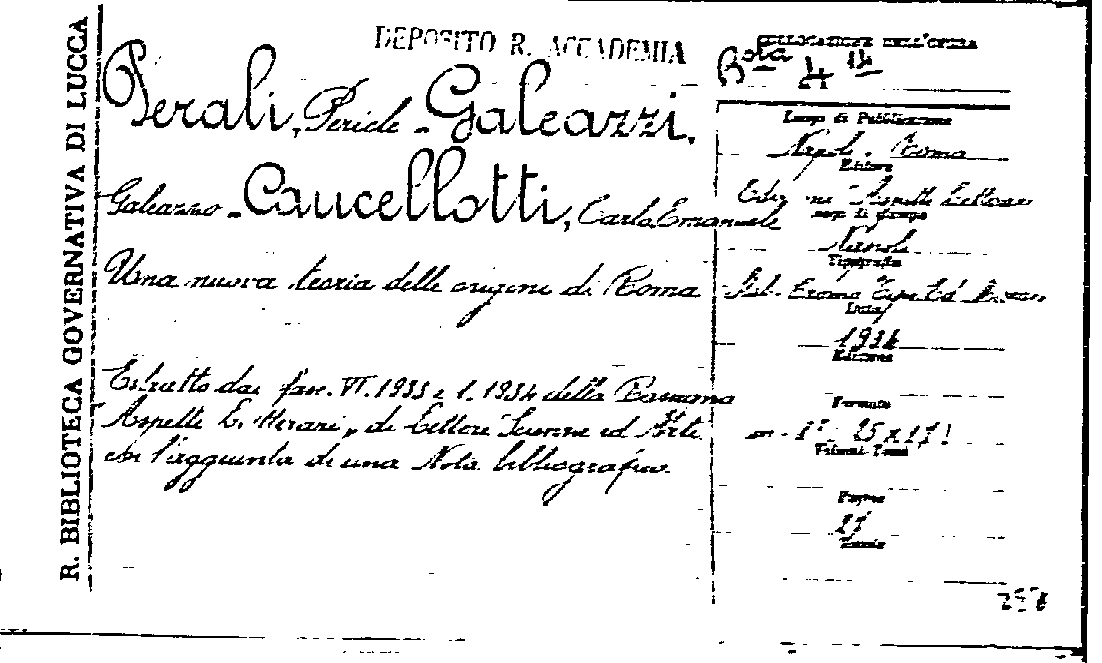 R. BIBLIOTECA GOVERNATIVA DI LUCCA
DEPOSITO R. ACCADEMIA
Perali, Pericle - Galeazzi,
Galeazzo - Cancellotti, Carlo Emanuele
Una nuova teoria delle origini di Roma
Estratto dai fasc. VI. 1933 e 1. 1934 della Rassegna
Aspetti Letterari, di Lettere Scienze ed Arti
con l'aggiunta di una Nota bibliografica
COLLOCAZIONE DELL'OPERA
Bta 44
Luogo di Pubblicazione
Napoli - Roma
Editore
Edizione Aspetti Letterari
Luogo di stampa
Napoli
Tipografia
Data
1934
Edizione
Formato
25 x 17
Volumi-Tomi
Pagine
27